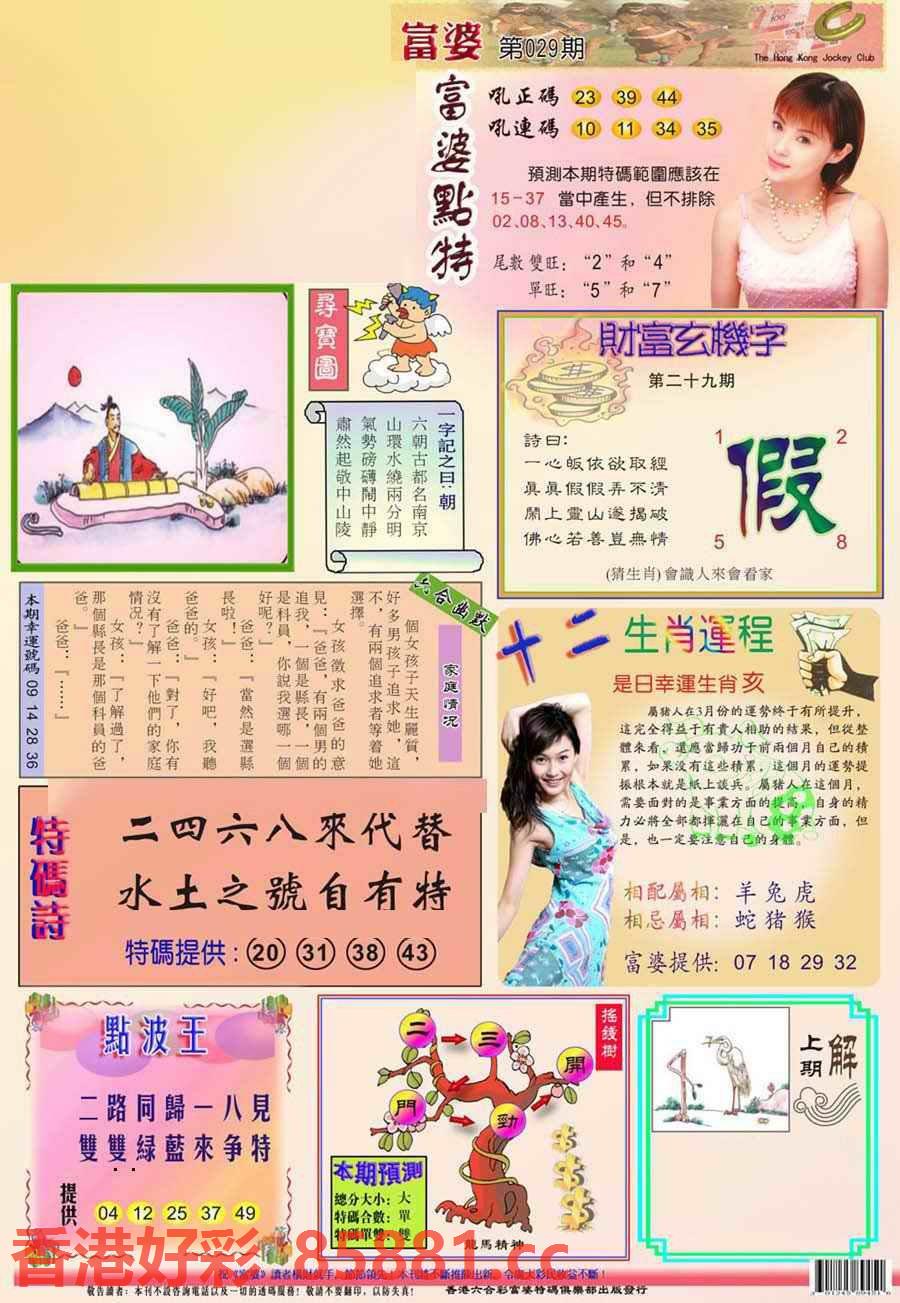 富婆 第029期
The Hong Kong Jockey Club
富婆點特
吼正碼 23 39 44
吼連碼 10 11 34 35
預測本期特碼範圍應該在
15-37 當中產生，但不排除
02、08、13、40、45。
尾數雙旺：“2”和“4”
單旺：“5”和“7”
尋寶圖
一字記之曰：朝
六朝古都名南京
山環水繞兩分明
氣勢磅礴鬧中靜
肅然起敬中山陵
財富玄機字
第二十九期
詩曰：
一心皈依欲取經
真真假假弄不清
鬧上靈山遂揭破
佛心若善豈無情
假
1 2
5 8
(猜生肖)會識人來會看家
六合幽默
家庭情況
個女孩子天生麗質，
好多男孩子追求她，這
不，有兩個追求者等着她
選擇。
女孩徵求爸爸的意
見：『爸爸，有兩個男的
追我，一個是縣長，一個
是科員，你說我選哪一個
好呢？』
爸爸：『當然是選縣
長啦！』
女孩：『好吧，我聽
爸爸的。』
爸爸：『對了，你有
沒有了解一下他們的家庭
情况？』
女孩：『了解過了，
那個縣長是那個科員的爸
爸。』
爸爸：『……』
本期幸運號碼 09 14 28 36
十二生肖運程
是日幸運生肖亥
屬猪人在3月份的運勢終于有所提升，
這完全得益于有貴人相助的結果，但從整
體來看，還應當歸功于前兩個月自己的積
累，如果没有這些積累，這個月的運勢提
振根本就是紙上談兵。屬猪人在這個月，
需要面對的是事業方面的提高，自身的精
力必將全部都揮灑在自己的事業方面，但
是，也一定要注意自己的身體。
相配屬相：羊兔虎
相忌屬相：蛇猪猴
富婆提供：07 18 29 32
特碼詩
二四六八來代替
水土之號自有特
特碼提供：20 31 38 43
點波王
二路同歸一八見
雙雙綠藍來争特
提供 04 12 25 37 49
搖錢樹
二 三 開
門 勁
本期預測
總分大小：大
特碼合數：單
特碼單雙：雙
龍馬精神
解上期
香港好彩 85881.cc
敬告讀者：本刊不設咨詢電話以及一切的透碼服務！敬請不要翻印，以防失真！
香港六合彩富婆特碼俱樂部出版發行